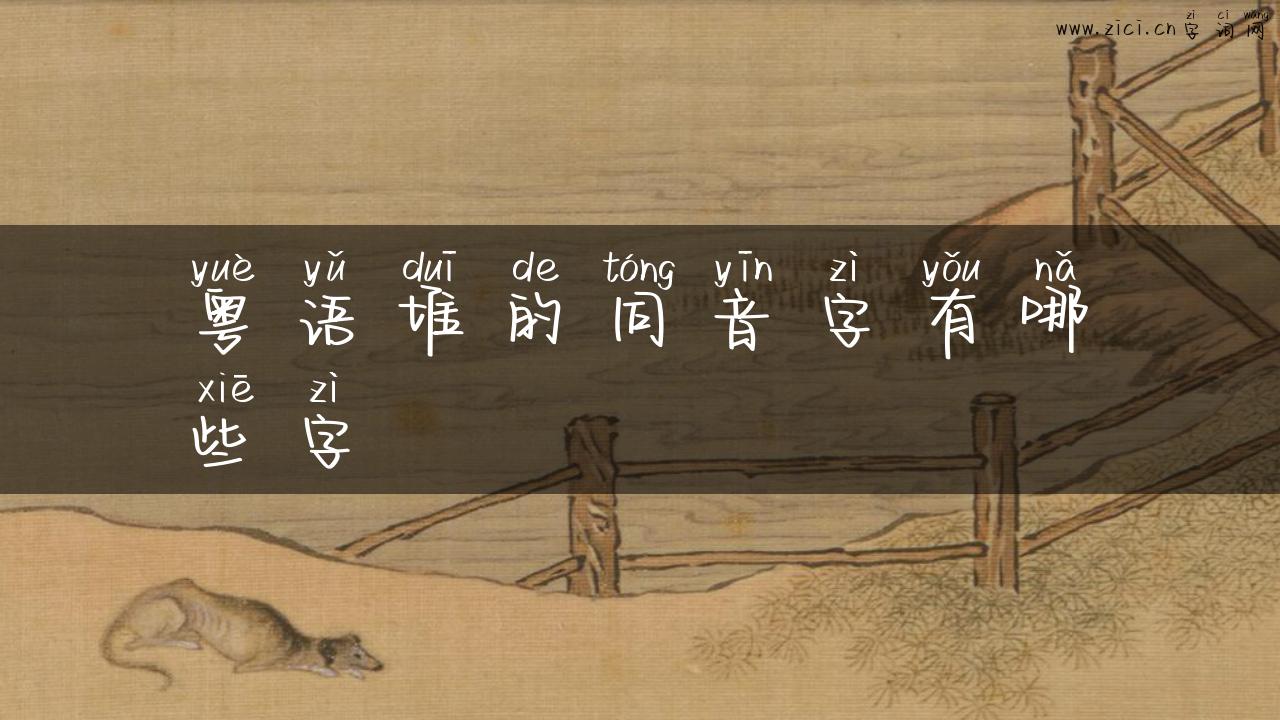 zì cí wǎng
www.zici.cn字词网
yuè yǔ duī de tóng yīn zì yǒu nǎ
粤语堆的同音字有哪
xiē zì
些字